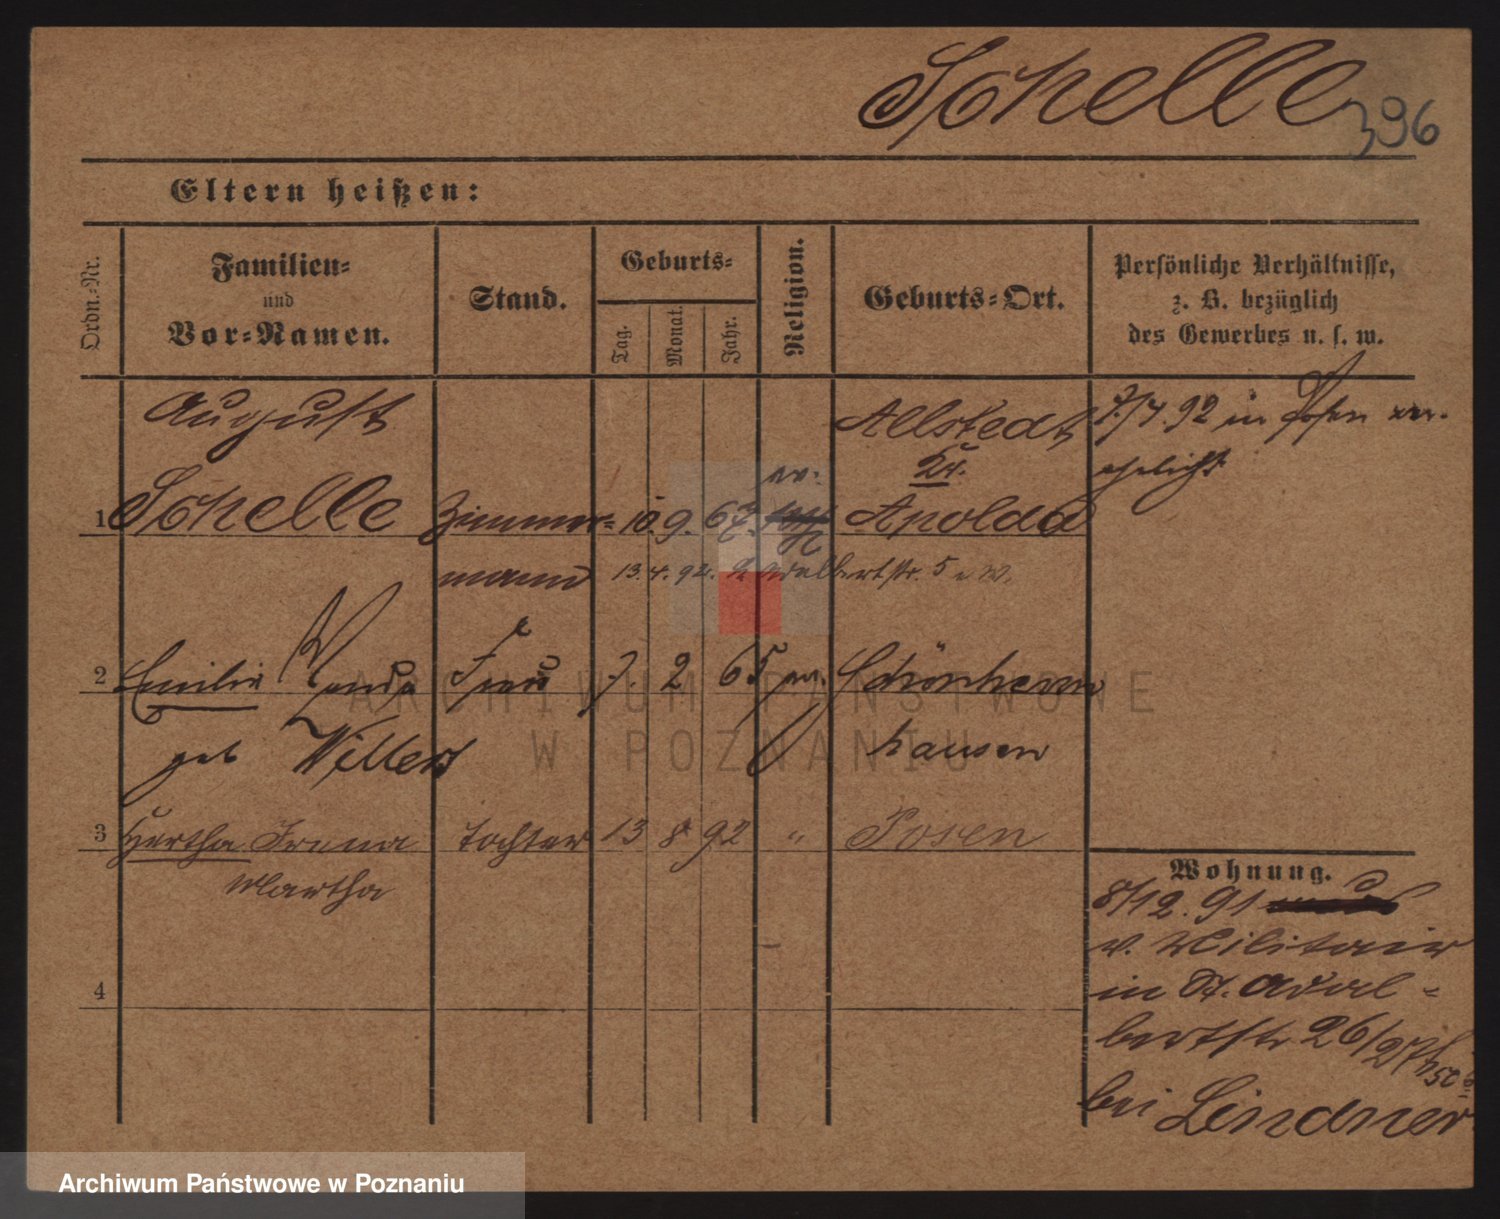 Schelle
396
Eltern heißen:
Ordn.-Nr.
Familien-
und
Vor-Namen.
Stand.
Geburts-
Tag.
Monat.
Jahr.
Religion.
Geburts-Ort.
Persönliche Verhältnisse,
z. B. bezüglich
des Gewerbes u. s. w.
August
Allstedt
7/4.92 in Posen ver-
Kr.
ehelicht
ev.
1 Schelle Zimmer= 10. 9. 67. Apolda
mann 13.4.92. Adalbertstr. 5
2 Emilie Frau 7. 2 65 ev. Schönherm
geb Willers hausen
3 Hertha Irena Tochter 13 8 92 " Posen
Martha
4
Wohnung.
8/12.91
v. Militair
in St. Adal-
bertstr 26/27
bei Lindner
ARCHIWUM PAŃSTWOWE
W POZNANIU
Archiwum Państwowe w Poznaniu